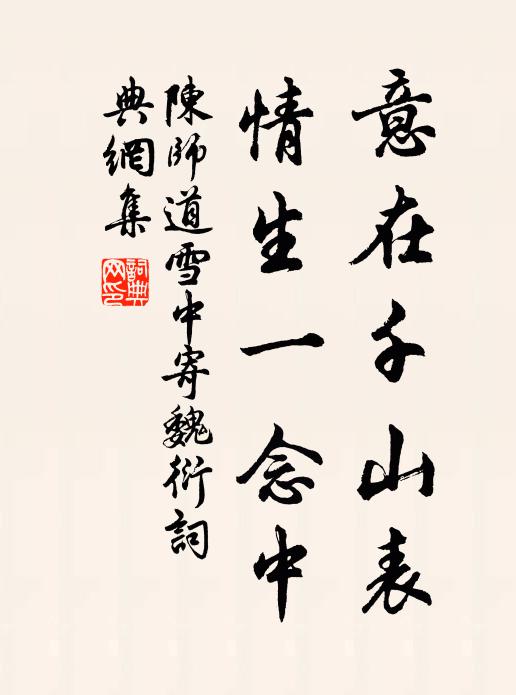 意在千山表
情生一念中
陳師道雪中寄魏衍詞
典網集
詞典
网印